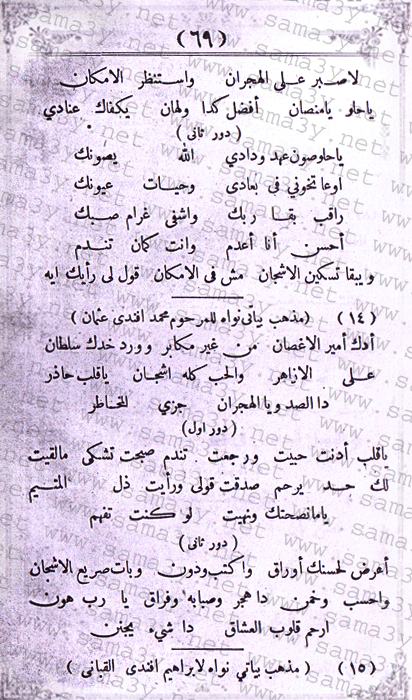 (٦٩)
لاصبر على الهجران واستنظر الامكان
ياحلو يامنصان أفضل كدا ولهان يكفاك عنادي
(دور ثانى)
ياحلوصون عهد ودادي الله يصونك
اوعا تخونني فى بعادى وحيات عيونك
راقب بقا ربك واشفى غرام صبك
أحسن أنا أعدم وانت كمان تندم
ويبقا تسكين الاشجان مش فى الامكان قول لى رأيك ايه
(١٤) (مذهب بياتى نواه للمرحوم محمد افندى عثمان)
أدك أمير الاغصان من غير مكابر وورد خدك سلطان
على الازاهر والحب كله اشجان ياقلب حاذر
دا الصد ويا الهجران جزي للخاطر
(دور اول)
ياقلب أدنت حبيت ورجعت تندم صبحت تشكى مالقيت
لك حد يرحم صدقت قولى ورأيت ذل المتيم
ياما نصحتك ونهيت لو كنت تفهم
(دور ثانى)
أعرض لحسنك أوراق واكتب ودون وبات صريع الاشجان
واحسب وخمن دا هجر وصبابه وفراق يا رب هون
ارحم قلوب العشاق دا شيء يجنن
(١٥) (مذهب بياتي نواه لابراهيم افندى القبانى)
www.sama3y.net